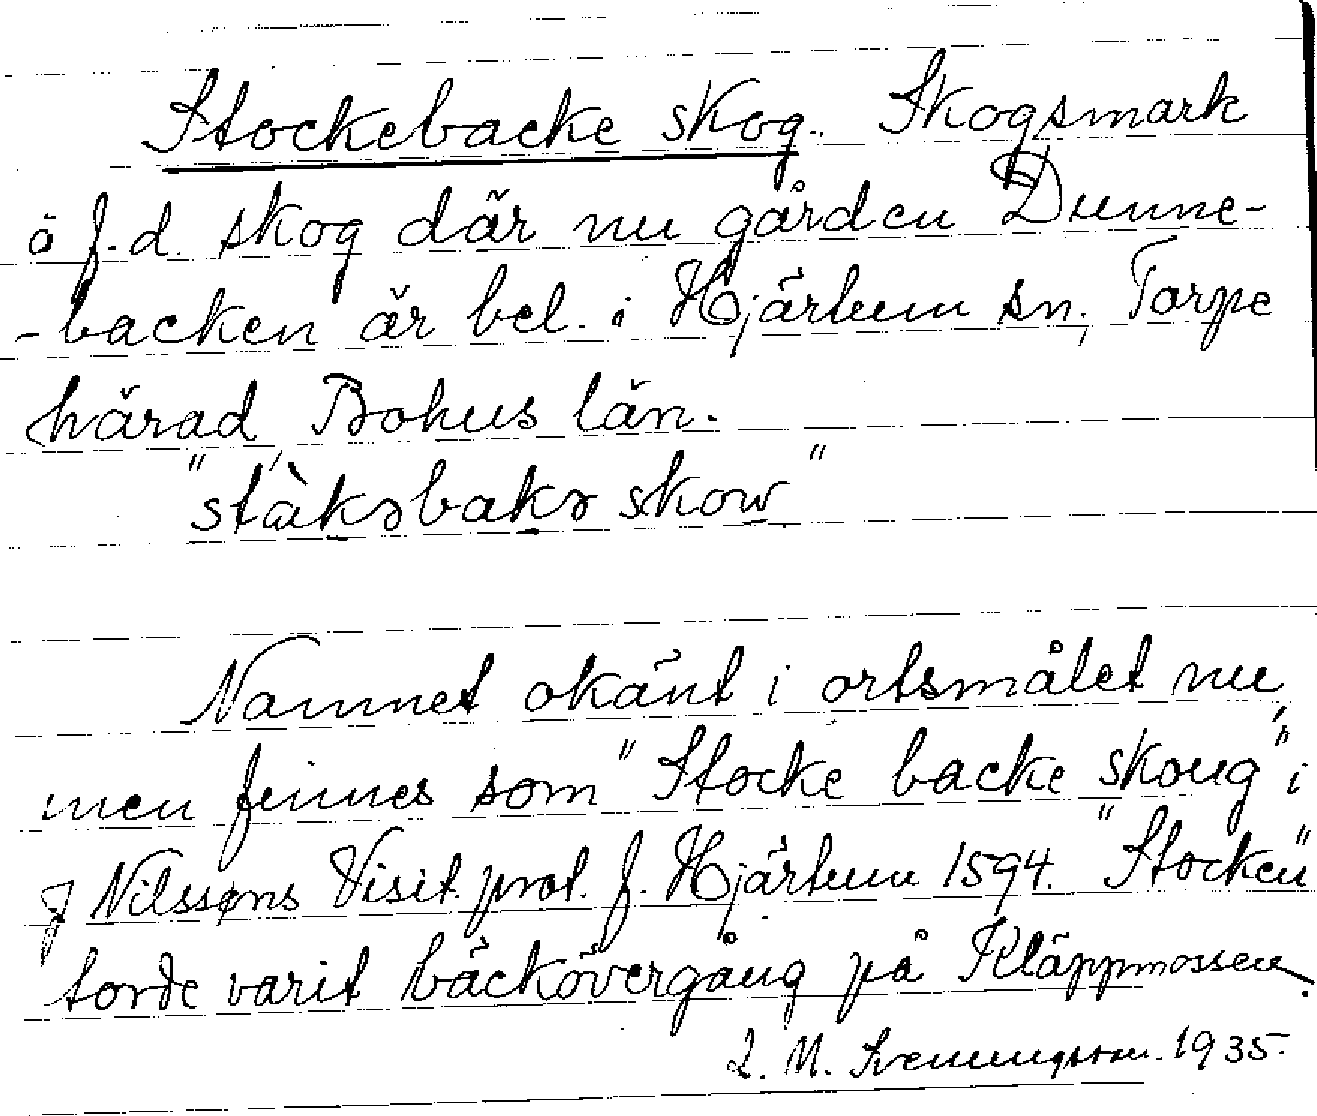 Stockebacke skog. Skogsmark
å f.d. skog där nu gården Dunne-
-backen är bel. i Hjärtum sn, Torpe
härad, Bohus län.
"ståkəbakə skow"
Namnet okänt i ortsmålet nu,
men finnes som "Stocke backe skoug" i
J Nilssøns Visit. prot. f. Hjärtum 1594. "Stocken"
torde varit bäckövergång på Kläppmossen.
L. M. Svenungsson. 1935.